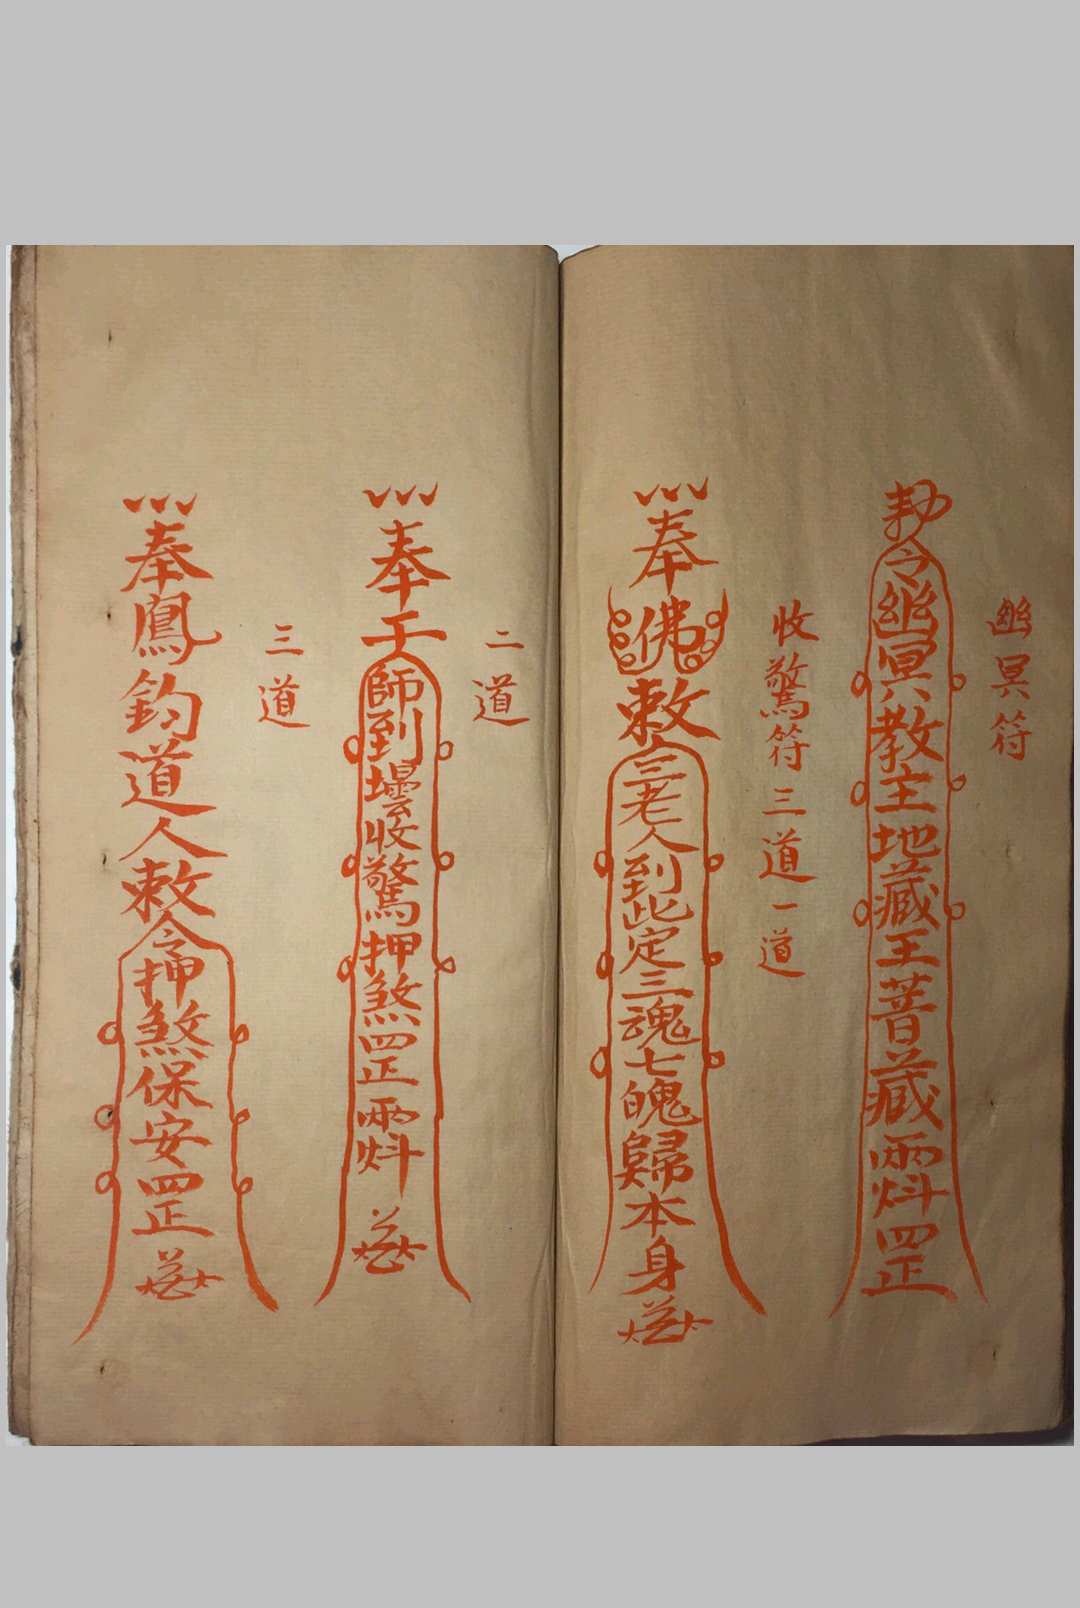 幽冥符
勅令幽冥教主地藏王菩薩雨㪷罡
收驚符三道一道
奉佛敕令三老人到此定三魂七魄歸本身
二道
奉天師到壇收驚押煞罡雨㪷
三道
奉鳳鈞道人敕令押煞保安罡